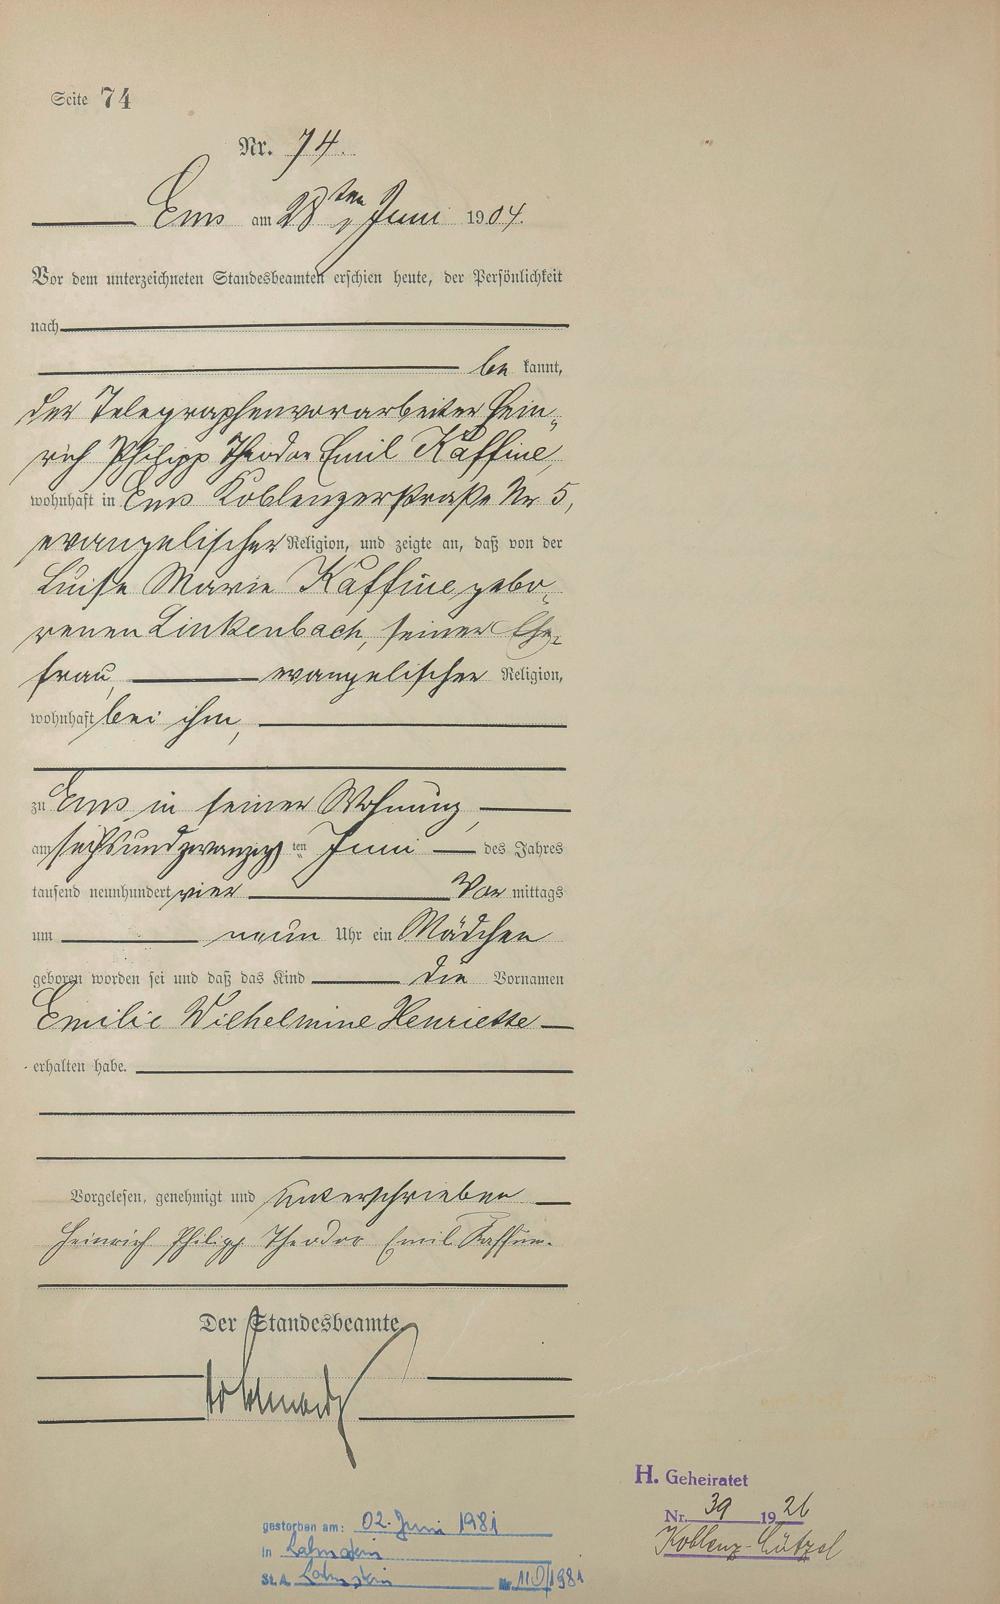 Seite 74
Nr. 74.
Ems am 28ten Juni 1904.
Vor dem unterzeichneten Standesbeamten erschien heute, der Persönlichkeit
nach
be kannt,
der Telegraphenvorarbeiter Hein„
rich Philipp Theodor Emil Kaffine,
wohnhaft in Ems Koblenzerstraße Nr 5,
evangelischer Religion, und zeigte an, daß von der
Luise Marie Kaffine gebo„
renen Linkenbach, seiner Ehe„
frau, evangelischer Religion,
wohnhaft bei ihm,
zu Ems in seiner Wohnung,
am sechsundzwanzig ten Juni des Jahres
tausend neunhundert vier Vor mittags
um neun Uhr ein Mädchen
geboren worden sei und daß das Kind die Vornamen
Emilie Wilhelmine Henriette
erhalten habe.
Vorgelesen, genehmigt und unterschrieben
Heinrich Philipp Theodor Emil Kaffine.
Der Standesbeamte.
gestorben am: 02. Juni 1981
in Lahnstein
St.A. Lahnstein Nr. 110/1981
H. Geheiratet
Nr. 39 1926
Koblenz-Lützel